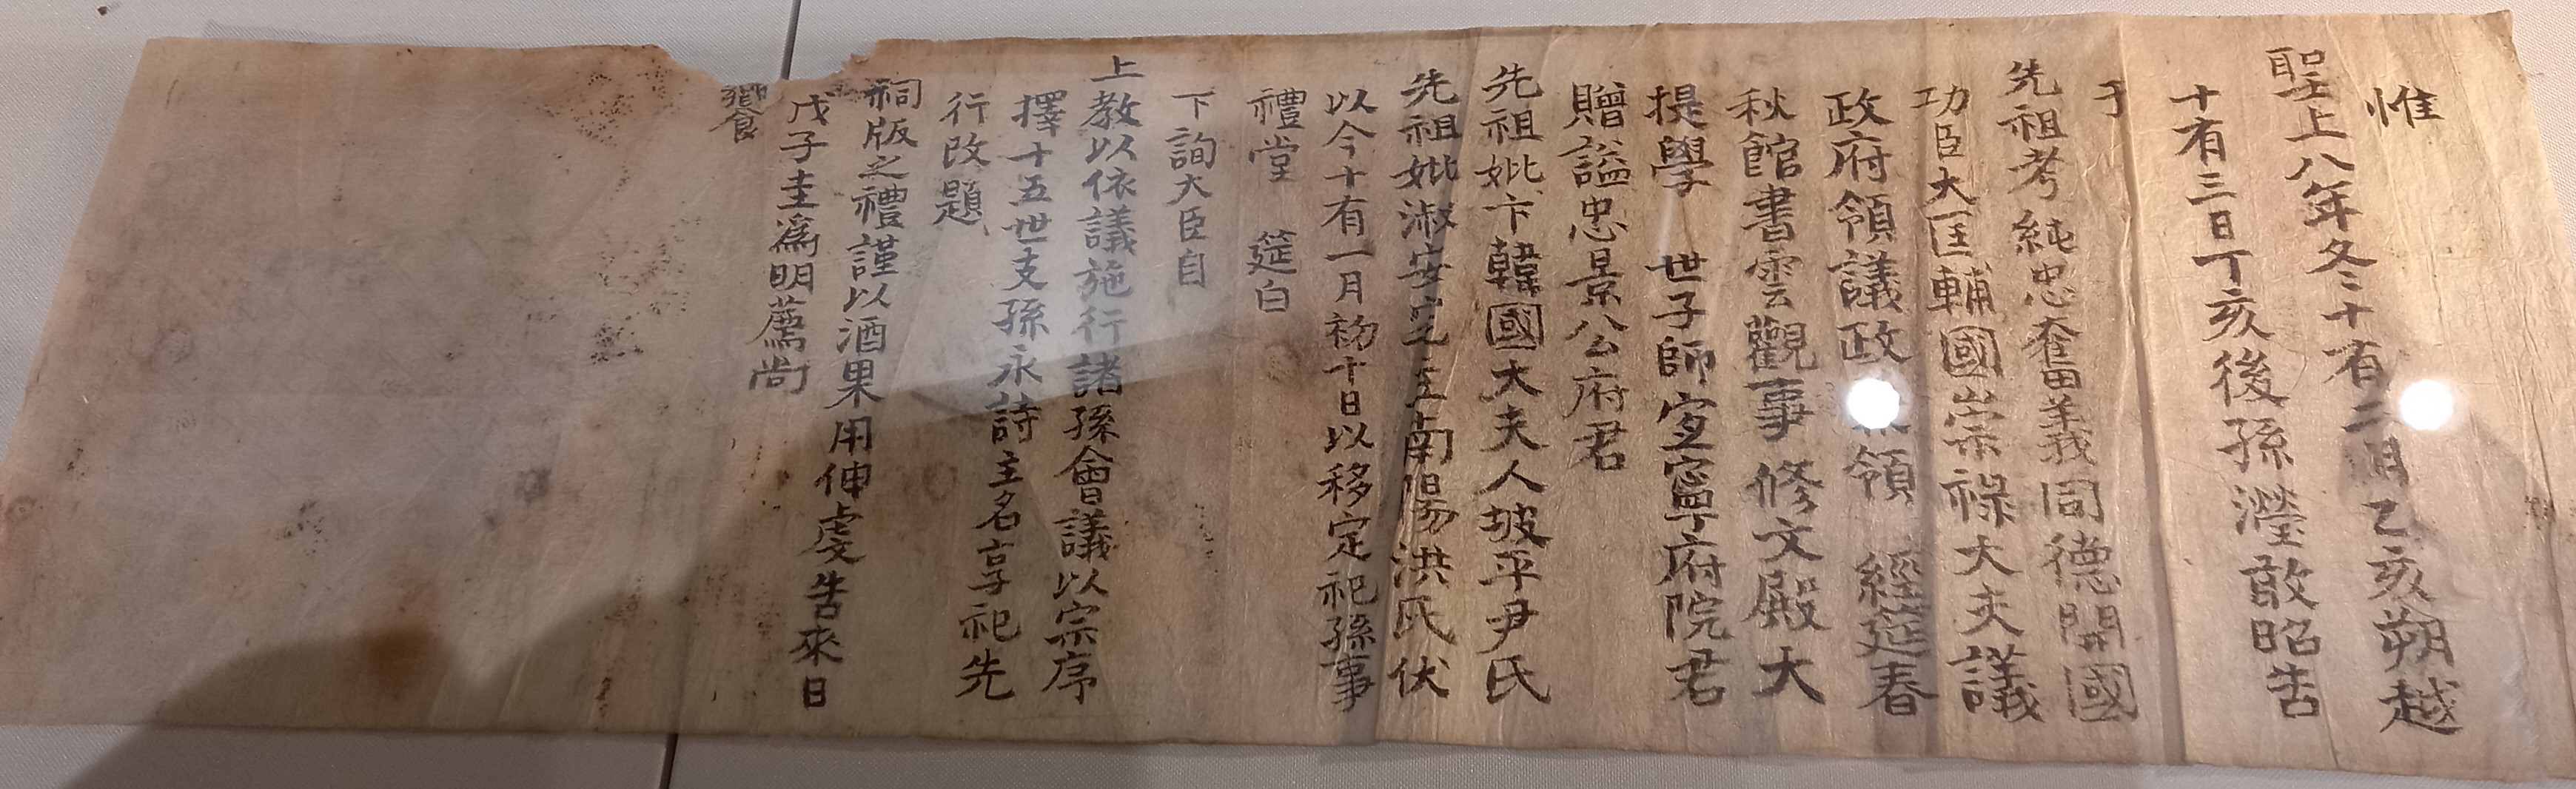 惟
聖上八年冬十有二月乙亥朔越
十有三日丁亥後孫瀅敢昭告
于
先祖考純忠奮義同德開國
功臣大匡輔國崇祿大夫議
政府領議政 領 經筵春
秋館書雲觀事修文殿大
提學 世子師寔寧府院君
贈諡忠景公府君
先祖妣卞韓國大夫人坡平尹氏
先祖妣淑安宅主南陽洪氏伏
以今十有一月初十日以移定祀孫事
禮堂 筵白
下詢大臣自
上教以依議施行諸孫會議以宗序
擇十五世支孫永詩主名享祀先
行改題
祠版之禮謹以酒果用伸虔告來日
戊子圭爲明薦尙
饗